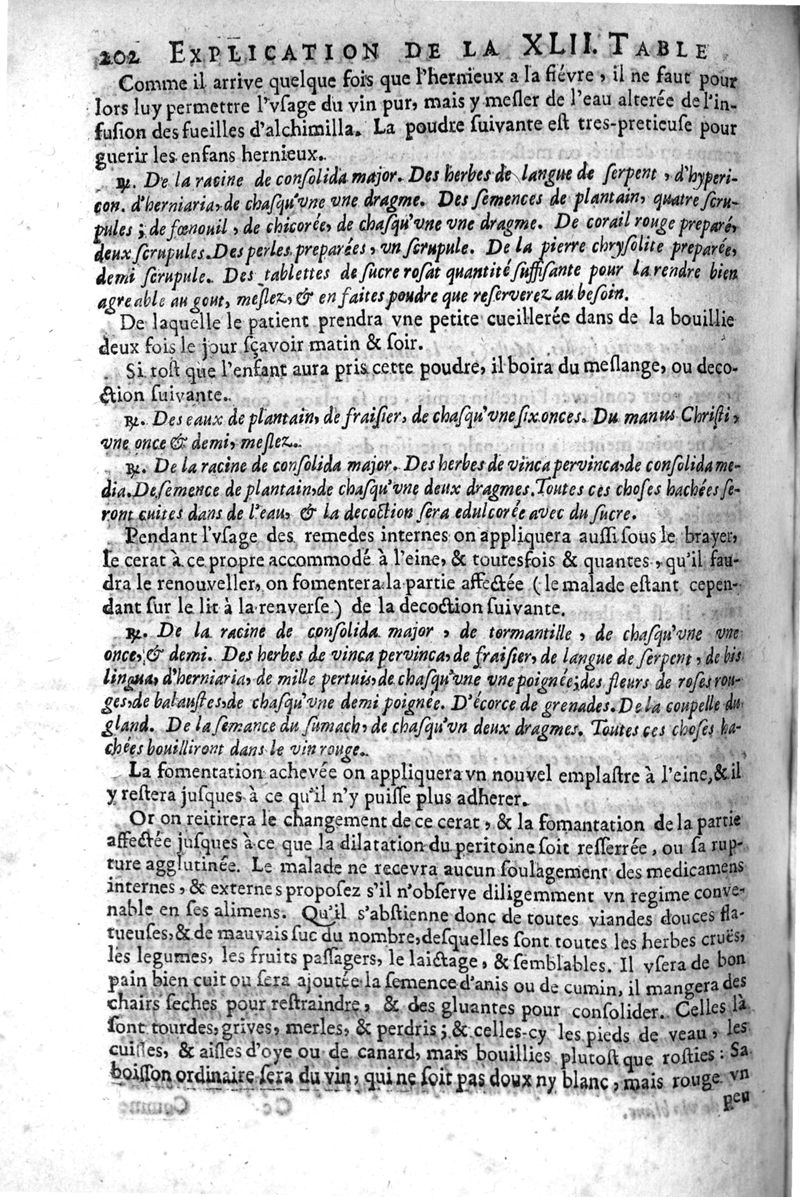 202 EXPLICATION DE LA XLII. TABLE
Comme il arrive quelque fois que l'hernieux a la fiévre, il ne faut pour
lors luy permettre l'vſage du vin pur, mais y meſler de l'eau alterée de l'in-
fuſion des fueilles d'alchimilla. La poudre ſuivante eſt tres-pretieuſe pour
guerir les enfans hernieux.
℞. De la racine de conſolida major. Des herbes de langue de ſerpent, d'hyperi-
con. d'herniaria, de chaſqu'vne vne dragme. Des ſemences de plantain, quatre ſcru-
pules; de fœnouil, de chicorée, de chaſqu'vne vne dragme. De corail rouge preparé,
deux ſcrupules. Des perles preparées, vn ſcrupule. De la pierre chryſolite preparée,
demi ſcrupule. Des tablettes de ſucre roſat quantité ſuffiſante pour la rendre bien
agreable au gout, meſlez, & en faites poudre que reſerverez au beſoin.
De laquelle le patient prendra vne petite cueillerée dans de la bouillie
deux fois le jour ſçavoir matin & ſoir.
Si toſt que l'enfant aura pris cette poudre, il boira du meſlange, ou deco-
ction ſuivante.
℞. Des eaux de plantain, de fraiſier, de chaſqu'vne ſix onces. Du manus Chriſti,
vne once & demi, meſlez.
℞. De la racine de conſolida major. Des herbes de vinca pervinca, de conſolida me-
dia. De ſemence de plantain, de chaſqu'vne deux dragmes. Toutes ces choſes hachées ſe-
ront cuites dans de l'eau, & la decoction ſera edulcorée avec du ſucre.
Pendant l'vſage des remedes internes on appliquera auſſi ſous le brayer,
le cerat à ce propre accommodé à l'eine, & toutesfois & quantes, qu'il fau-
dra le renouveller, on fomentera la partie affectée (le malade eſtant cepen-
dant ſur le lit à la renverſe) de la decoction ſuivante.
℞. De la racine de conſolida major, de tormantille, de chaſqu'vne vne
once, & demi. Des herbes de vinca pervinca, de fraiſier, de langue de ſerpent, de bis
lingua, d'herniaria, de mille pertuis, de chaſqu'vne vne poignée; des fleurs de roſes rou-
ges, de balauſtes, de chaſqu'vne demi poignée. D'écorce de grenades. De la coupelle du
gland. De la ſemance du ſumach, de chaſqu'vn deux dragmes. Toutes ces choſes ha-
chées bouilliront dans le vin rouge.
La fomentation achevée on appliquera vn nouvel emplaſtre à l'eine, & il
y reſtera juſques à ce qu'il n'y puiſſe plus adherer.
Or on reitirera le changement de ce cerat, & la fomantation de la partie
affectée juſques à ce que la dilatation du peritoine ſoit reſſerrée, ou ſa rup-
ture agglutinée. Le malade ne recevra aucun ſoulagement des medicamens
internes, & externes propoſez s'il n'obſerve diligemment vn regime conve-
nable en ſes alimens. Qu'il s'abſtienne donc de toutes viandes douces fla-
tueuſes, & de mauvais ſuc du nombre, deſquelles ſont toutes les herbes cruës,
les legumes, les fruits paſſagers, le laictage, & ſemblables. Il vſera de bon
pain bien cuit ou ſera ajoutée la ſemence d'anis ou de cumin, il mangera des
chairs ſeches pour reſtraindre, & des gluantes pour conſolider. Celles là
ſont tourdes, grives, merles, & perdris; & celles-cy les pieds de veau, les
cuiſſes, & aiſles d'oye ou de canard, mais bouillies plutoſt que roſties: Sa
boiſſon ordinaire ſera du vin, qui ne ſoit pas doux ny blanc, mais rouge vn
peu